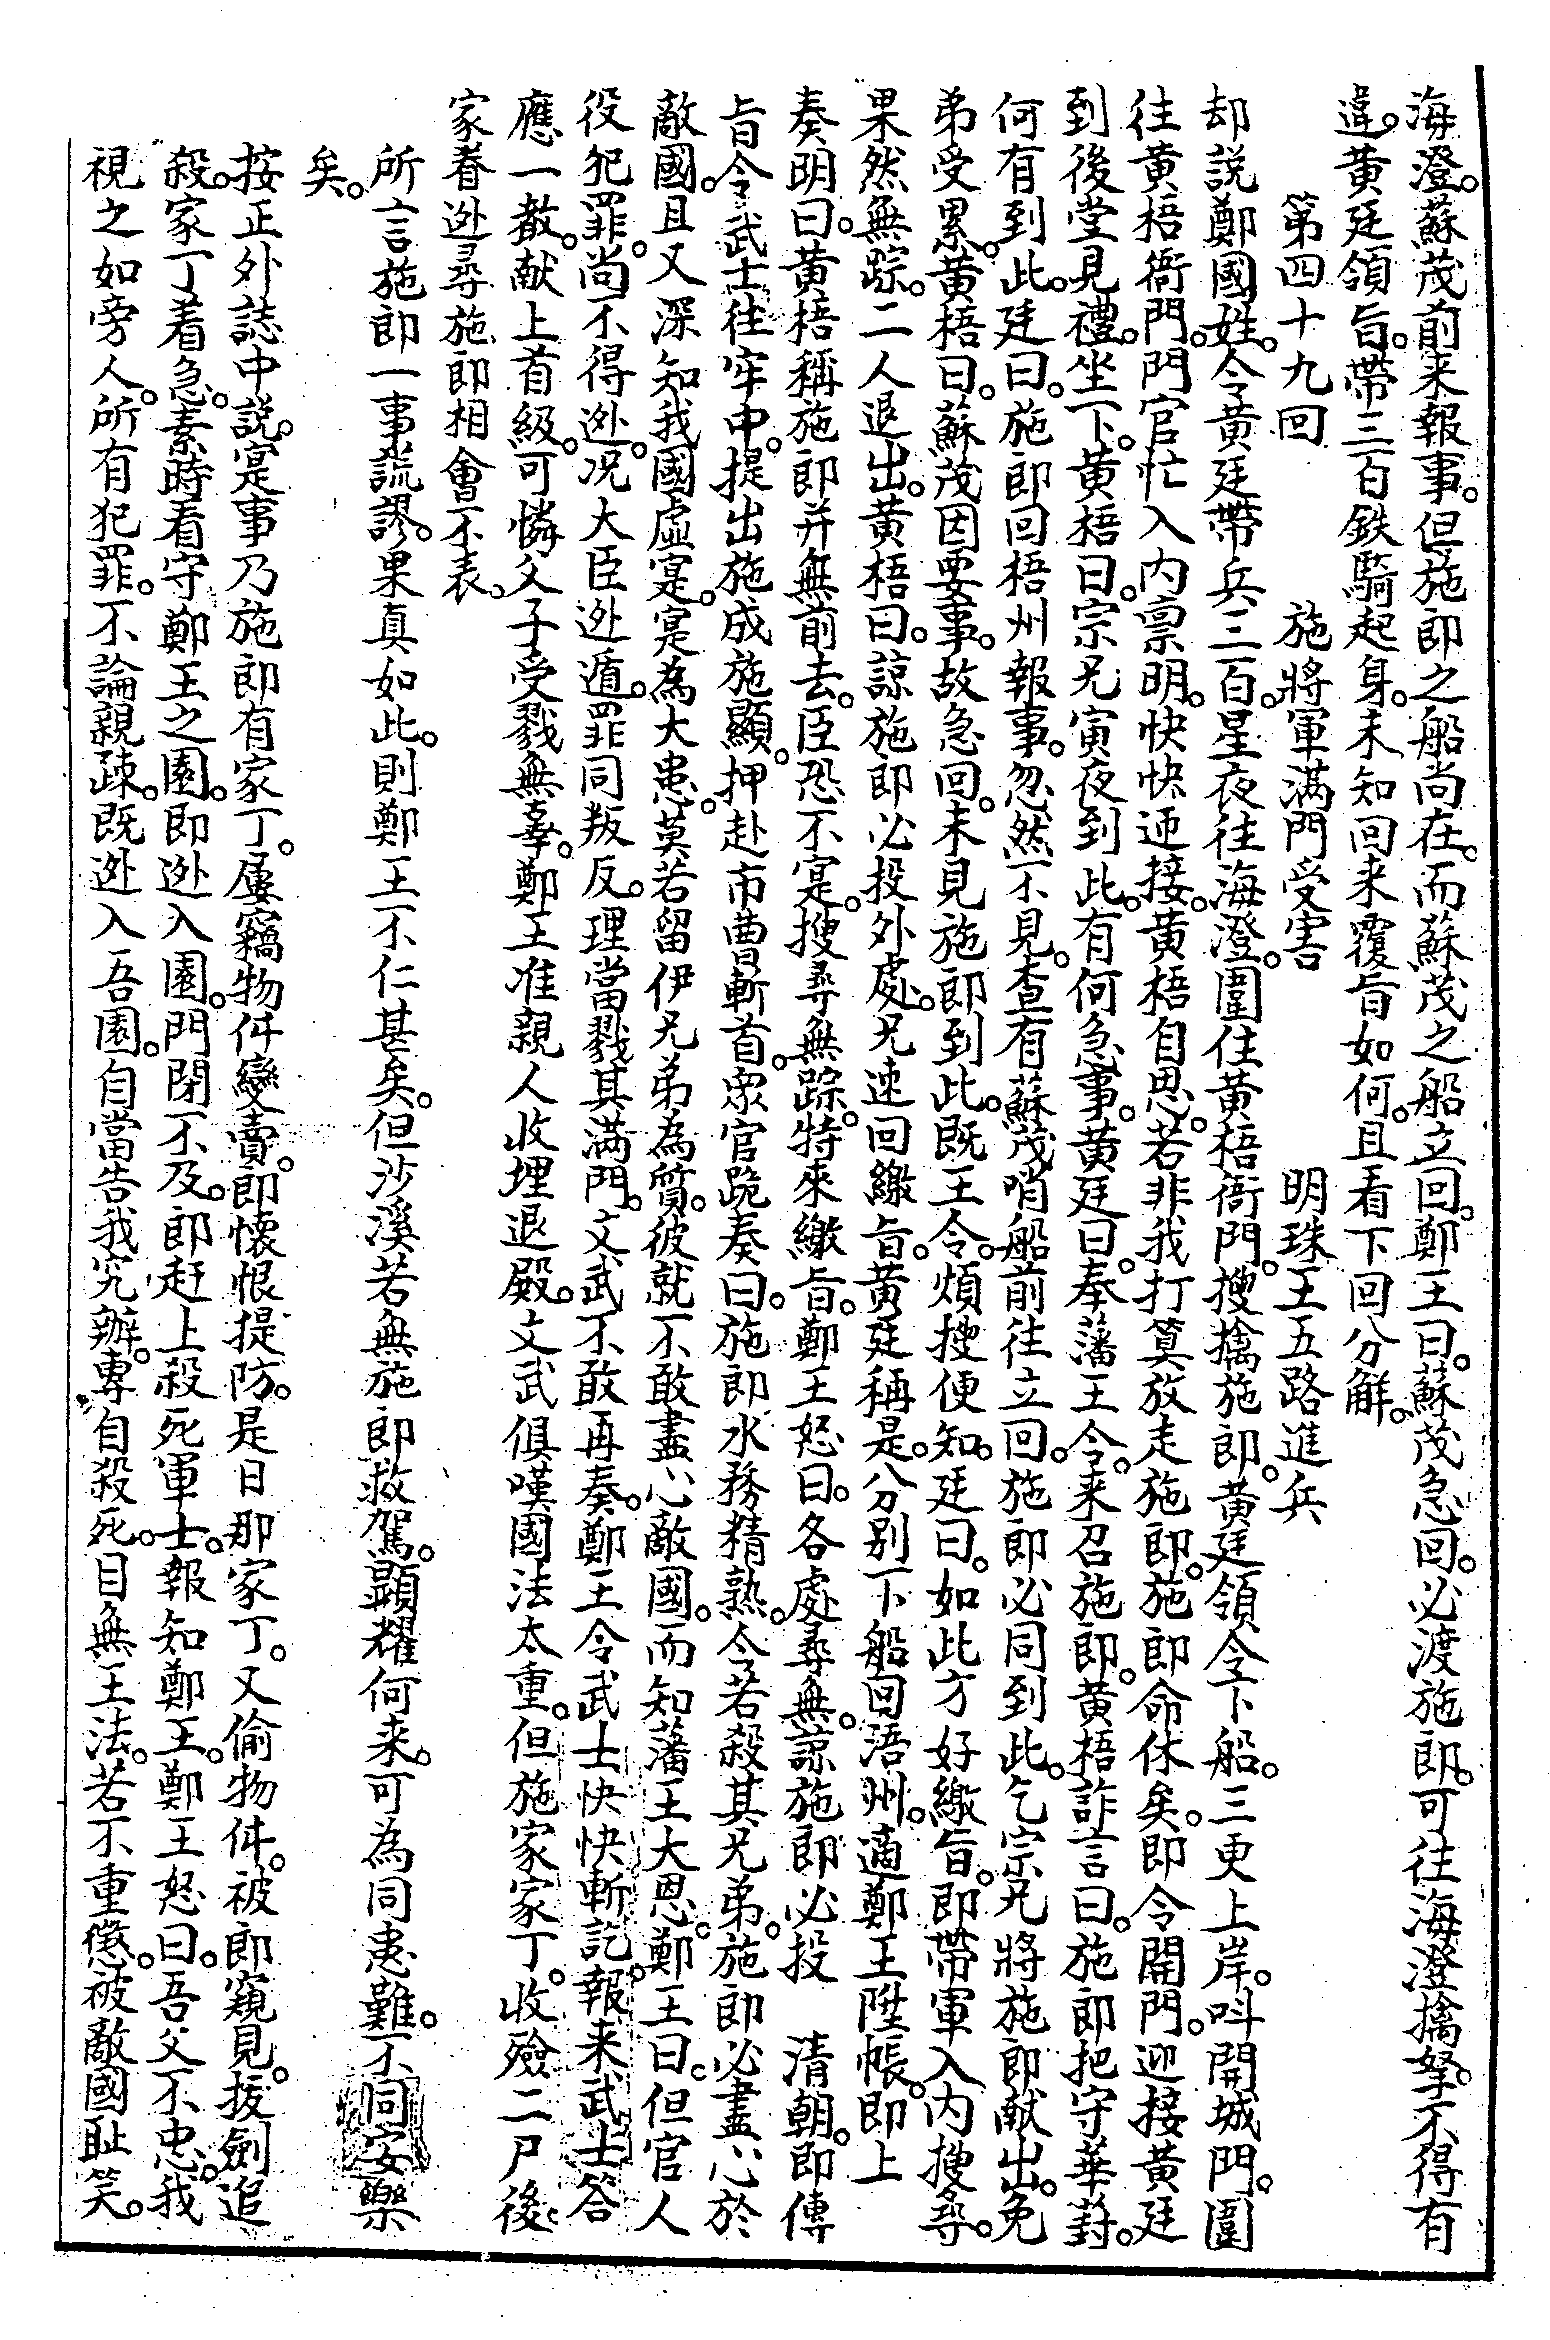 海澄。蘇茂前来報事。但施郎之船尚在。而蘇茂之船立回。鄭王曰。蘇茂急回。必渡施郎。可往海澄擒拏。不得有
違。黃廷領旨。帶三百鉄騎起身。未知回来覆旨如何。且看下回分解。
第四十九回　施將軍滿門受害　明珠王五路進兵
却説鄭國姓。令黃廷帶兵三百。星夜往海澄。圍住黃梧衙門。搜擒施郎。黃廷領令下船。三更上岸。呌開城門。圍
往黃梧衙門。門官忙入內禀明。快快迊接。黃梧自思。若非我打算放走施郎。施郎命休矣。即令開門。迎接黃廷
到後堂見禮。坐下。黃梧曰。宗兄寅夜到此。有何急事。黃廷曰。奉藩王令。来召施郎。黃梧詐言曰。施郎把守華封。
何有到此。廷曰。施郎回梧州報事。忽然不見。查有蘇茂哨船前往立回。施郎必同到此。乞宗兄將施郎献出。免
弟受累。黃梧曰。蘇茂因要事。故急回。未見施郎到此。既王令。煩搜便知。廷曰。如此方好繳旨。即帶軍入內搜尋。
果然無踪。二人退出。黃梧曰。諒施郎必投外處。兄速回繳旨。黃廷稱是。分别下船回浯州。適鄭王陞帳。即上
奏明曰。黃梧稱施郎并無前去。臣恐不寔。搜尋無踪。特來繳旨。鄭王怒曰。各處尋無。諒施郎必投　清朝。即傳
旨令武士往牢中。提出施成施顯。押赴市曹斬首。衆官跪奏曰。施郎水務精熟。今若殺其兄弟。施郎必盡心於
敵國。且又深知我國虛寔。寔為大患。莫若留伊兄弟為質。彼就不敢盡心敵國。而知藩王大恩。鄭王曰。但官人
役犯罪。尚不得迯。况大臣迯遁。罪同叛反。理當戮其滿門。文武不敢再奏。鄭王令武士快快斬訖。報来武士答
應一聲。献上首級。可憐父子受戮無辜。鄭王准親人收埋退殿。文武俱嘆國法太重。但施家家丁。收殮二尸後。
家眷迯尋施郎相會不表。
所言施郎一事謊謬。果真如此。則鄭王不仁甚矣。但沙溪若無施郎救駕。顯耀何来。可為同患難。不同安樂
矣。
按正外誌中説。寔事乃施郎有家丁。屢竊物件變賣。郎懷恨提防。是日那家丁。又偷物件。被郎窺見。拔劍追
殺。家丁着急。素時看守鄭王之園。即迯入園。門閉不及。郎赶上殺死軍士。報知鄭王。鄭王怒曰。吾父不忠。我
視之如旁人。所有犯罪。不論親疎。既迯入吾園。自當告我究辦。專自殺死。目無王法。若不重懲。被敵國耻笑。